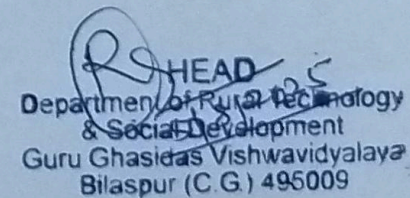 HEAD
Department of Rural Technology
& Social Development
Guru Ghasidas Vishwavidyalaya
Bilaspur (C.G.) 495009